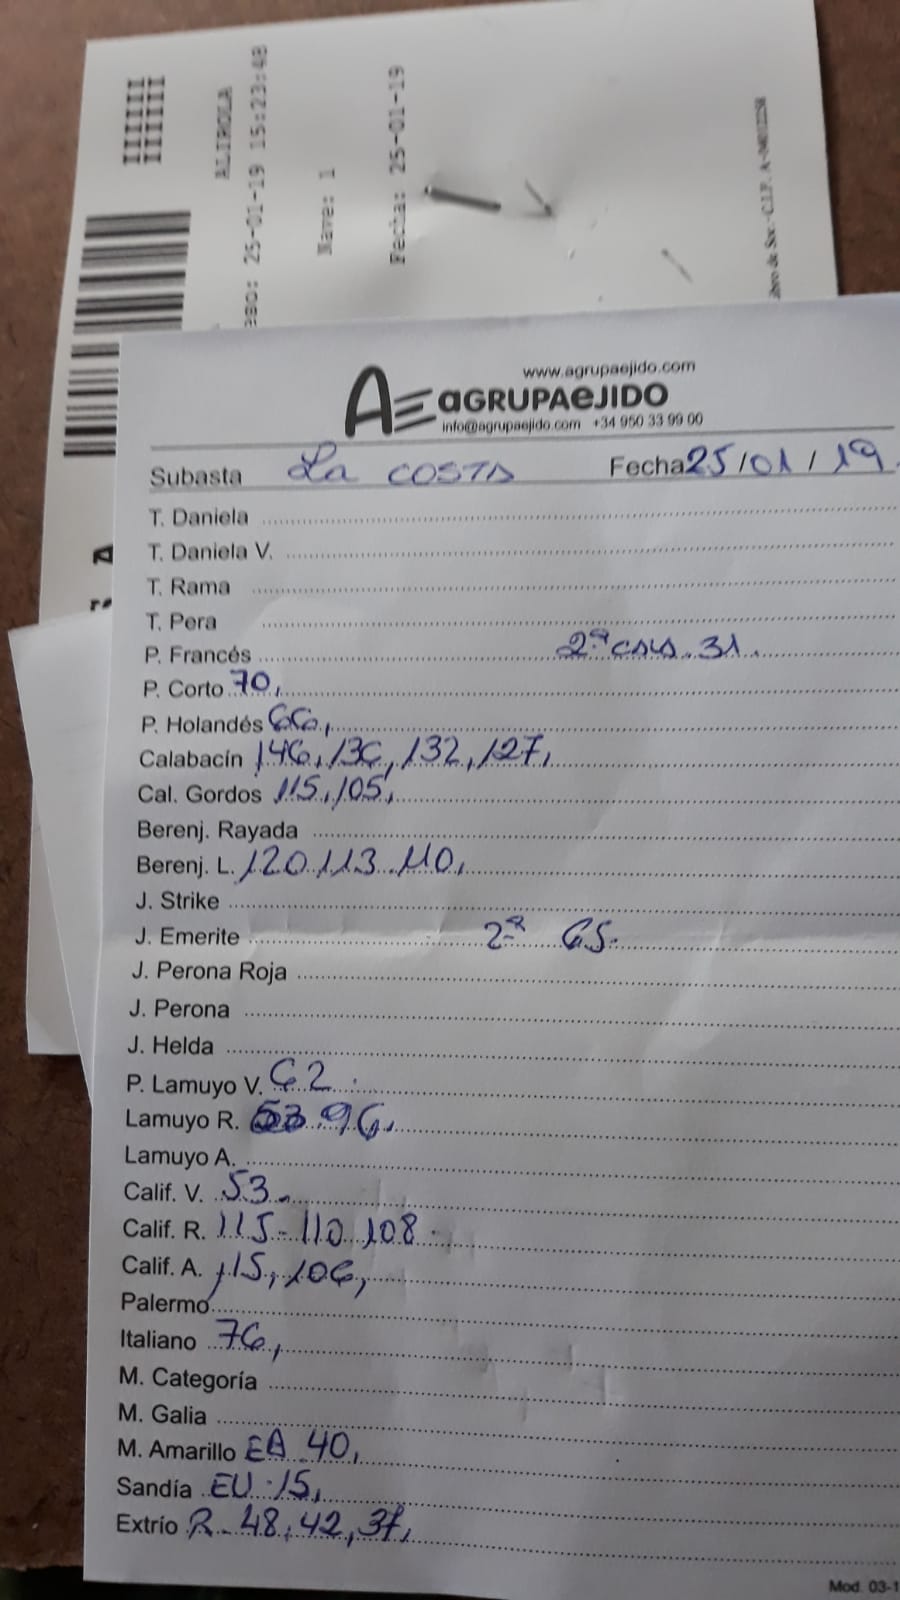 ALIROLA
25-01-19 15:23:48
Nave: 1
Fecha: 25-01-19
de Soc.- C.I.F. A-04012258
www.agrupaejido.com
AGRUPAEJIDO
info@agrupaejido.com +34 950 33 99 00
Subasta La COSTA Fecha 25/01/19
T. Daniela
T. Daniela V.
T. Rama
T. Pera
P. Francés 2ª 31.
P. Corto 70,
P. Holandés 66,
Calabacín 146, 136, 132, 127,
Cal. Gordos 115, 105,
Berenj. Rayada
Berenj. L. 120 113 110,
J. Strike
J. Emerite 2ª 65.
J. Perona Roja
J. Perona
J. Helda
P. Lamuyo V. 62.
Lamuyo R. 96,
Lamuyo A.
Calif. V. 53.
Calif. R. 115-110 108.
Calif. A. 115, 106,
Palermo
Italiano 76,
M. Categoría
M. Galia
M. Amarillo EA 40,
Sandía EU 15,
Extrío R-48, 42, 37,
Mod. 03-1